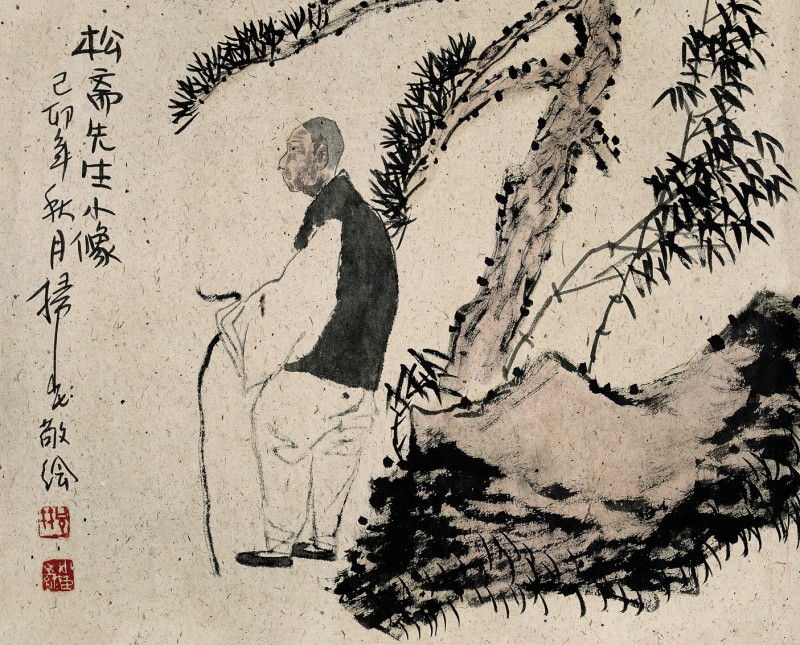 松斋先生小像
己卯年秋月扫一书敬绘